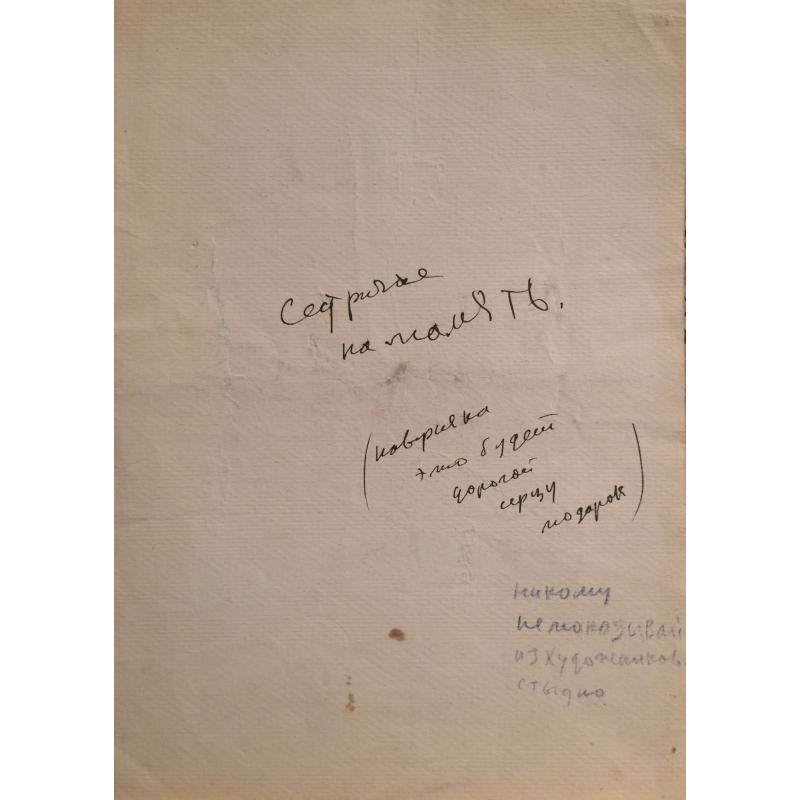 Сестричке
на память.
(наверняка
это будет
дорогой
серцу
подарок)
никому
непоказывай
из художников
стыдно